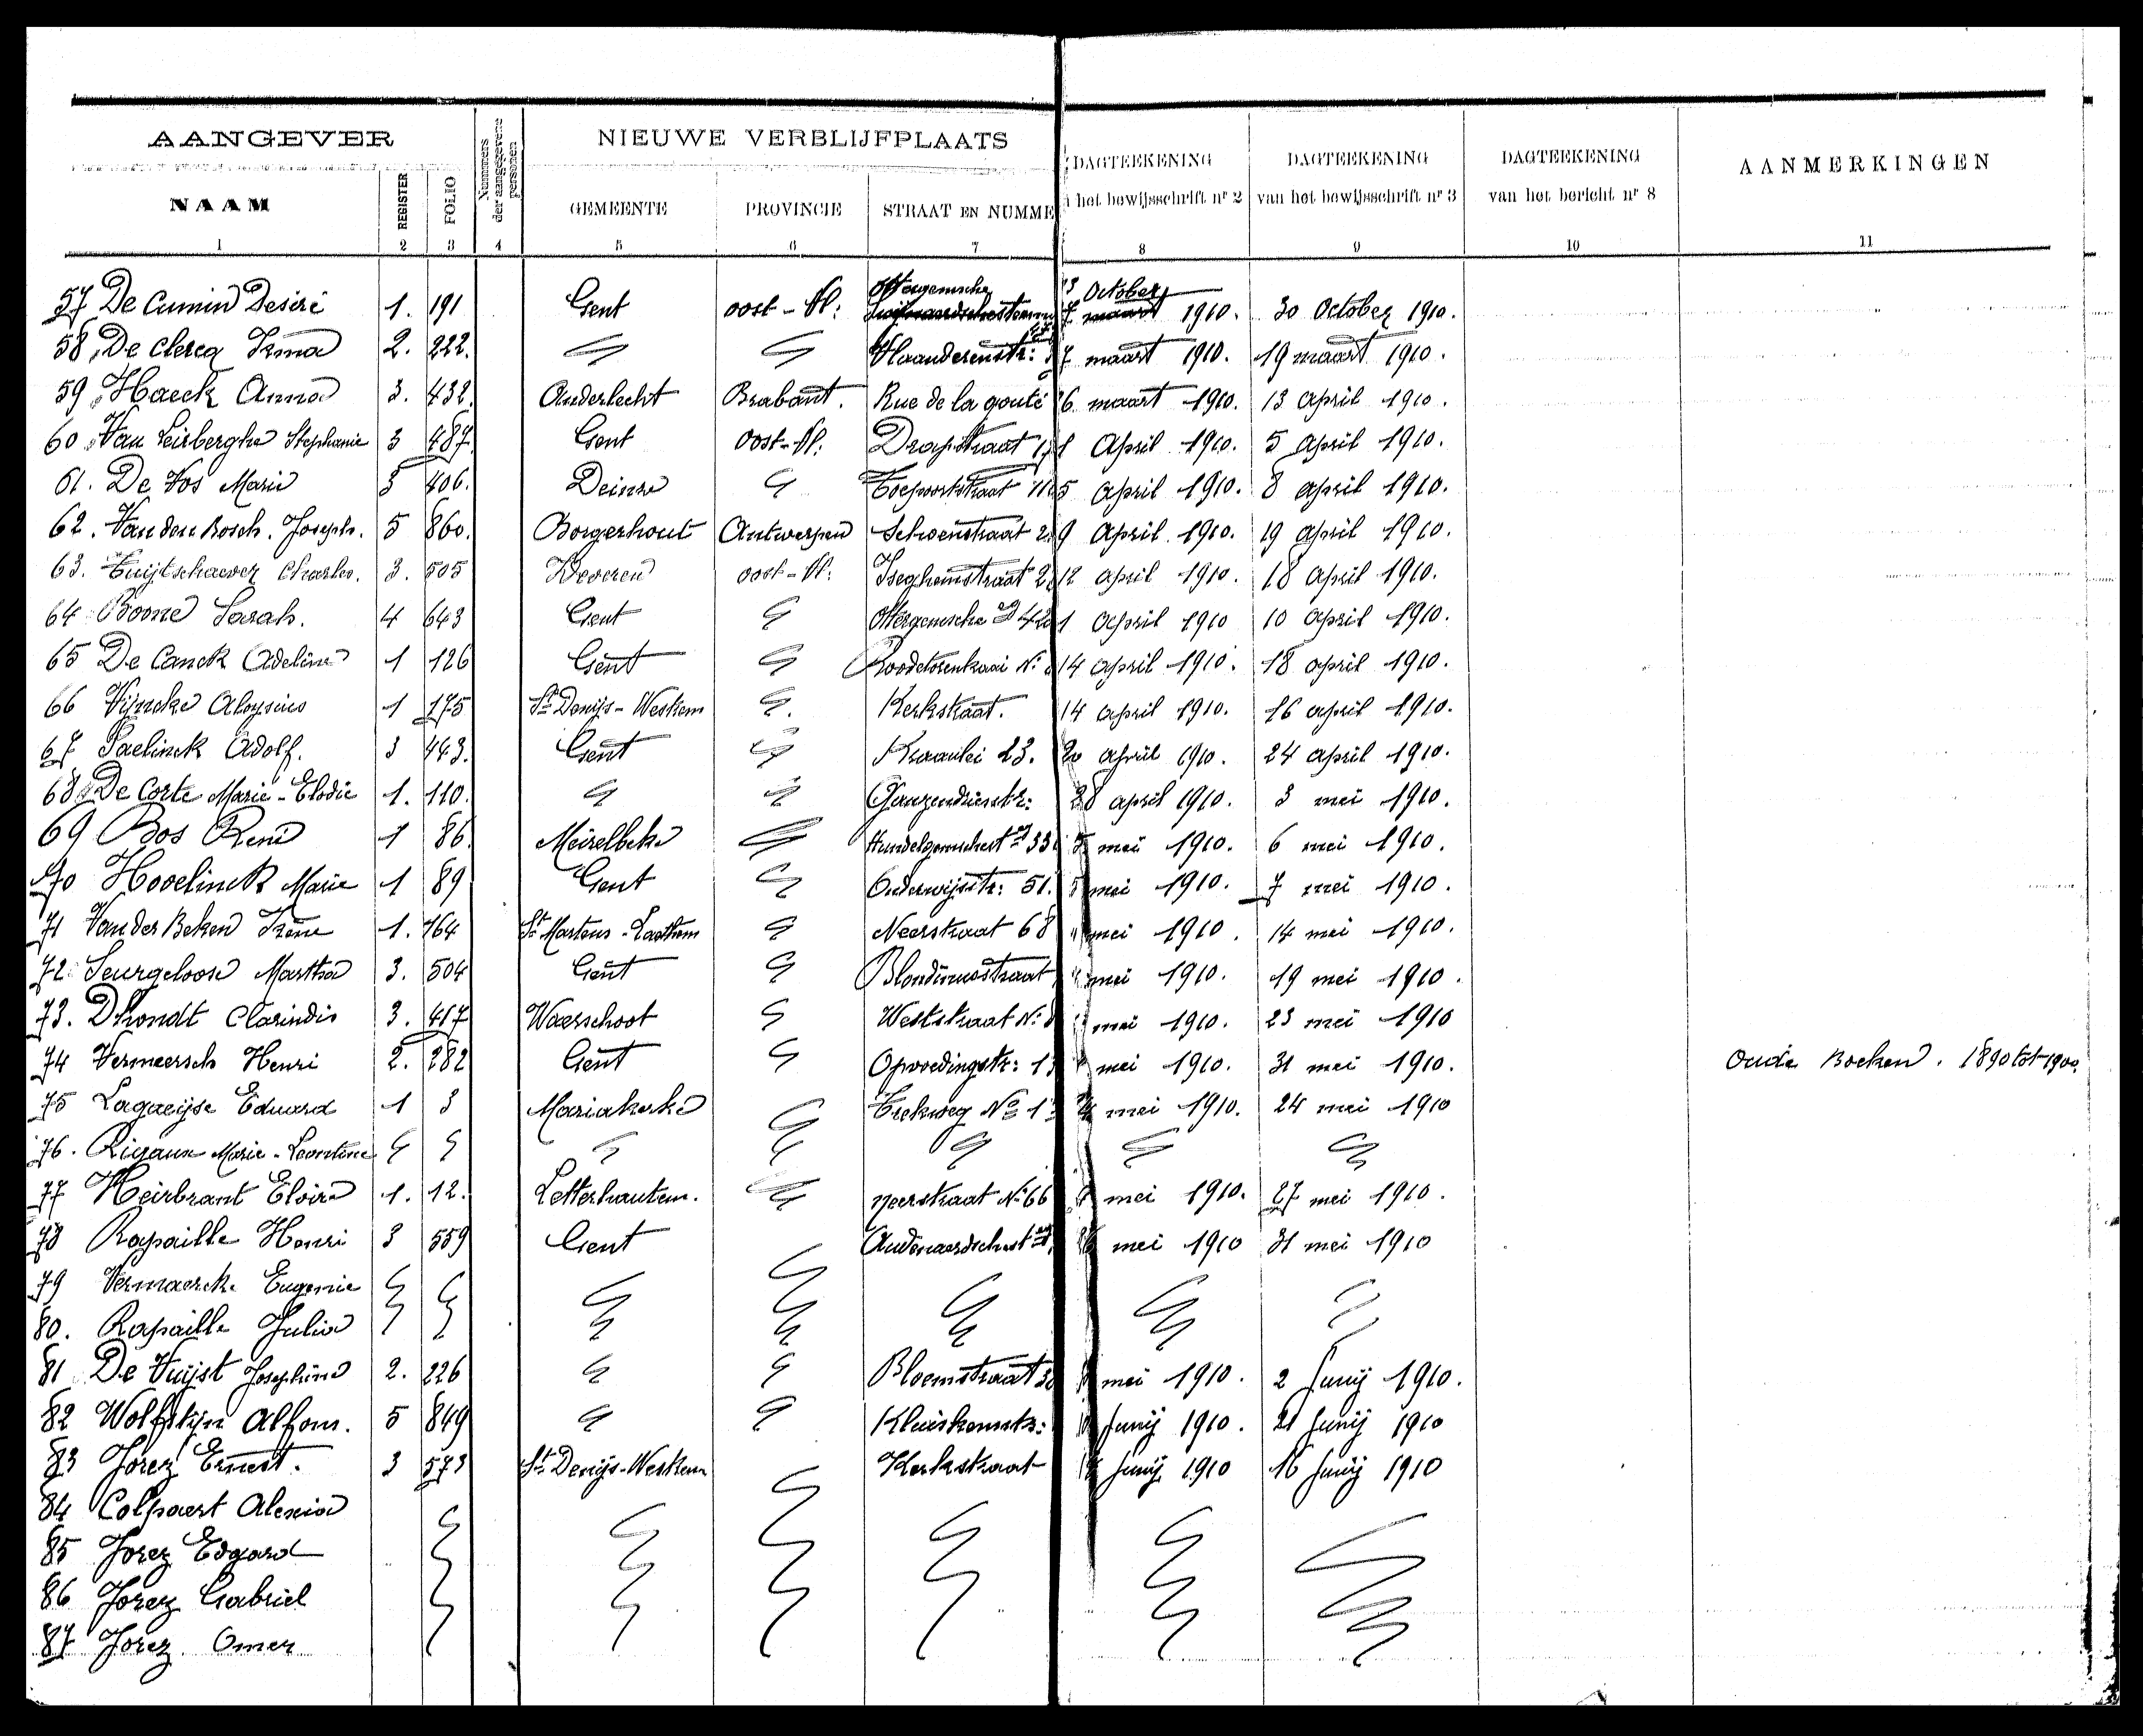 AANGEVER NIEUWE VERBLIJFPLAATS
NAAM REGISTER FOLIO Nummers der aangegevene personen GEMEENTE PROVINCIE STRAAT EN NUMME DAGTEEKENING het bewijsschrift nr 2 DAGTEEKENING van het bewijsschrift nr 3 DAGTEEKENING van het bericht nr 8 AANMERKINGEN
1 2 3 4 5 6 7 8 9 10 11
57 De Cumin Desiré 1. 191 Gent oost-Vl: Ottergemsche 13 October 7 maart 1910. 30 October 1910.
58 De Clercq Irma 2. 222. Vlaanderenstr: 7 maart 1910. 19 maart 1910.
59 Haeck Anna 3. 432. Anderlecht Brabant. Rue de la gouté 6 maart 1910. 13 april 1910.
60 Van Leirberghe Stephanie 3 487. Gent Oost-Vl. Drapstraat 1 April 1910. 5 april 1910.
61. De Vos Marie 3 406. Deinze 5 april 1910. 8 april 1910.
62. Van den Bosch. Joseph. 5 860. Borgerhout Antwerpen Schoenstraat 2 9 April 1910. 19 april 1910.
63. Tuijtschaever Charles. 3. 505 Beveren oost-Vl: Iseghemstraat 2 12 april 1910. 18 april 1910.
64 Boone Sarah. 4 643 Gent Ottergemsche 42 1 April 1910 10 april 1910.
65 De Canck Adeline 1 126 Gent Roodetorenkaai No. 14 april 1910. 18 april 1910.
66 Vijncke Aloysius 1 175 St Denijs-Westrem Kerkstraat. 14 april 1910. 16 april 1910.
67 Paelinck Adolf. 3 443. Gent Kraanlei 23. 20 april 1910. 24 april 1910.
68 De Corte Marie-Elodie 1. 110. Ganzendriestr: 28 april 1910. 3 mei 1910.
69 Bos René 1 86. Meirelbeke 33 mei 1910. 6 mei 1910.
70 Hovelinck Marie 1 89 Gent Onderwijsstr: 51. mei 1910. 7 mei 1910.
71 Van der Beken Irène 1. 164 St Martens-Laethem Neerstraat 68 mei 1910. 14 mei 1910.
72 Seurgeloose Martha 3. 504 Gent Blondinusstraat mei 1910. 19 mei 1910.
73. Dhondt Clarindis 3. 417 Waerschoot Weststraat No. mei 1910. 23 mei 1910
74 Vermeersch Henri 2. 282 Gent Opvoedingstr: 1 mei 1910. 31 mei 1910. Oude Boeken. 1890 tot 1900.
75 Lagaeijse Eduard 1 3 Mariakerke Trekweg No 1 mei 1910. 24 mei 1910
76. Rigaux Marie-Leontine
77 Heirbrant Elvira 1. 12. Letterhautem. Neerstraat No 66 mei 1910. 27 mei 1910.
78 Rapaille Henri 3 559 Gent mei 1910 31 mei 1910
79 Vermaercke Eugenie
80. Rapaille Julia
81 De Vuijst Josephine 2. 226 Bloemstraat mei 1910. 2 Junij 1910.
82 Wolfstijn Alfons. 5 849 Kluiskensstr: Junij 1910. 21 Junij 1910
83 Jorez Ernest. 3 573 St Denijs-Westrem Kerkstraat Junij 1910 16 Junij 1910
84 Colpaert Alexia
85 Jorez Edgard
86 Jorez Gabriel
87 Jorez Omer